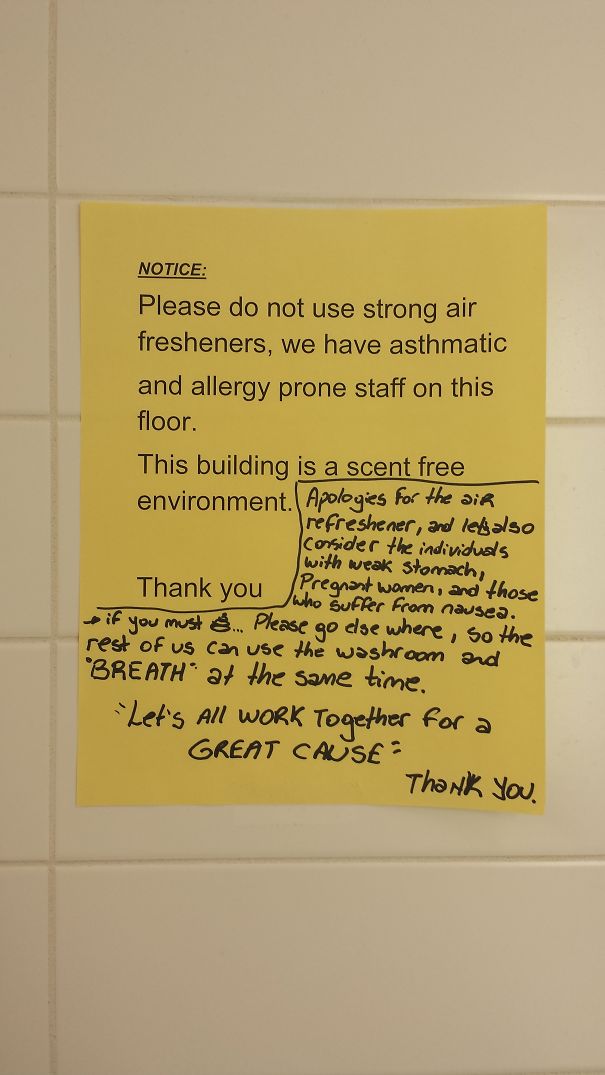 NOTICE:
Please do not use strong air
fresheners, we have asthmatic
and allergy prone staff on this
floor.
This building is a scent free
environment.
Thank you
Apologies for the aiR
refreshener, and let's also
Consider the individuals
with weak stomach,
Pregnant women, and those
who suffer from nausea.
→ if you must 💩... Please go else where, so the
rest of us can use the washroom and
"BREATH" at the same time.
"Let's All WORK Together for a
GREAT CAUSE"
Thank you.